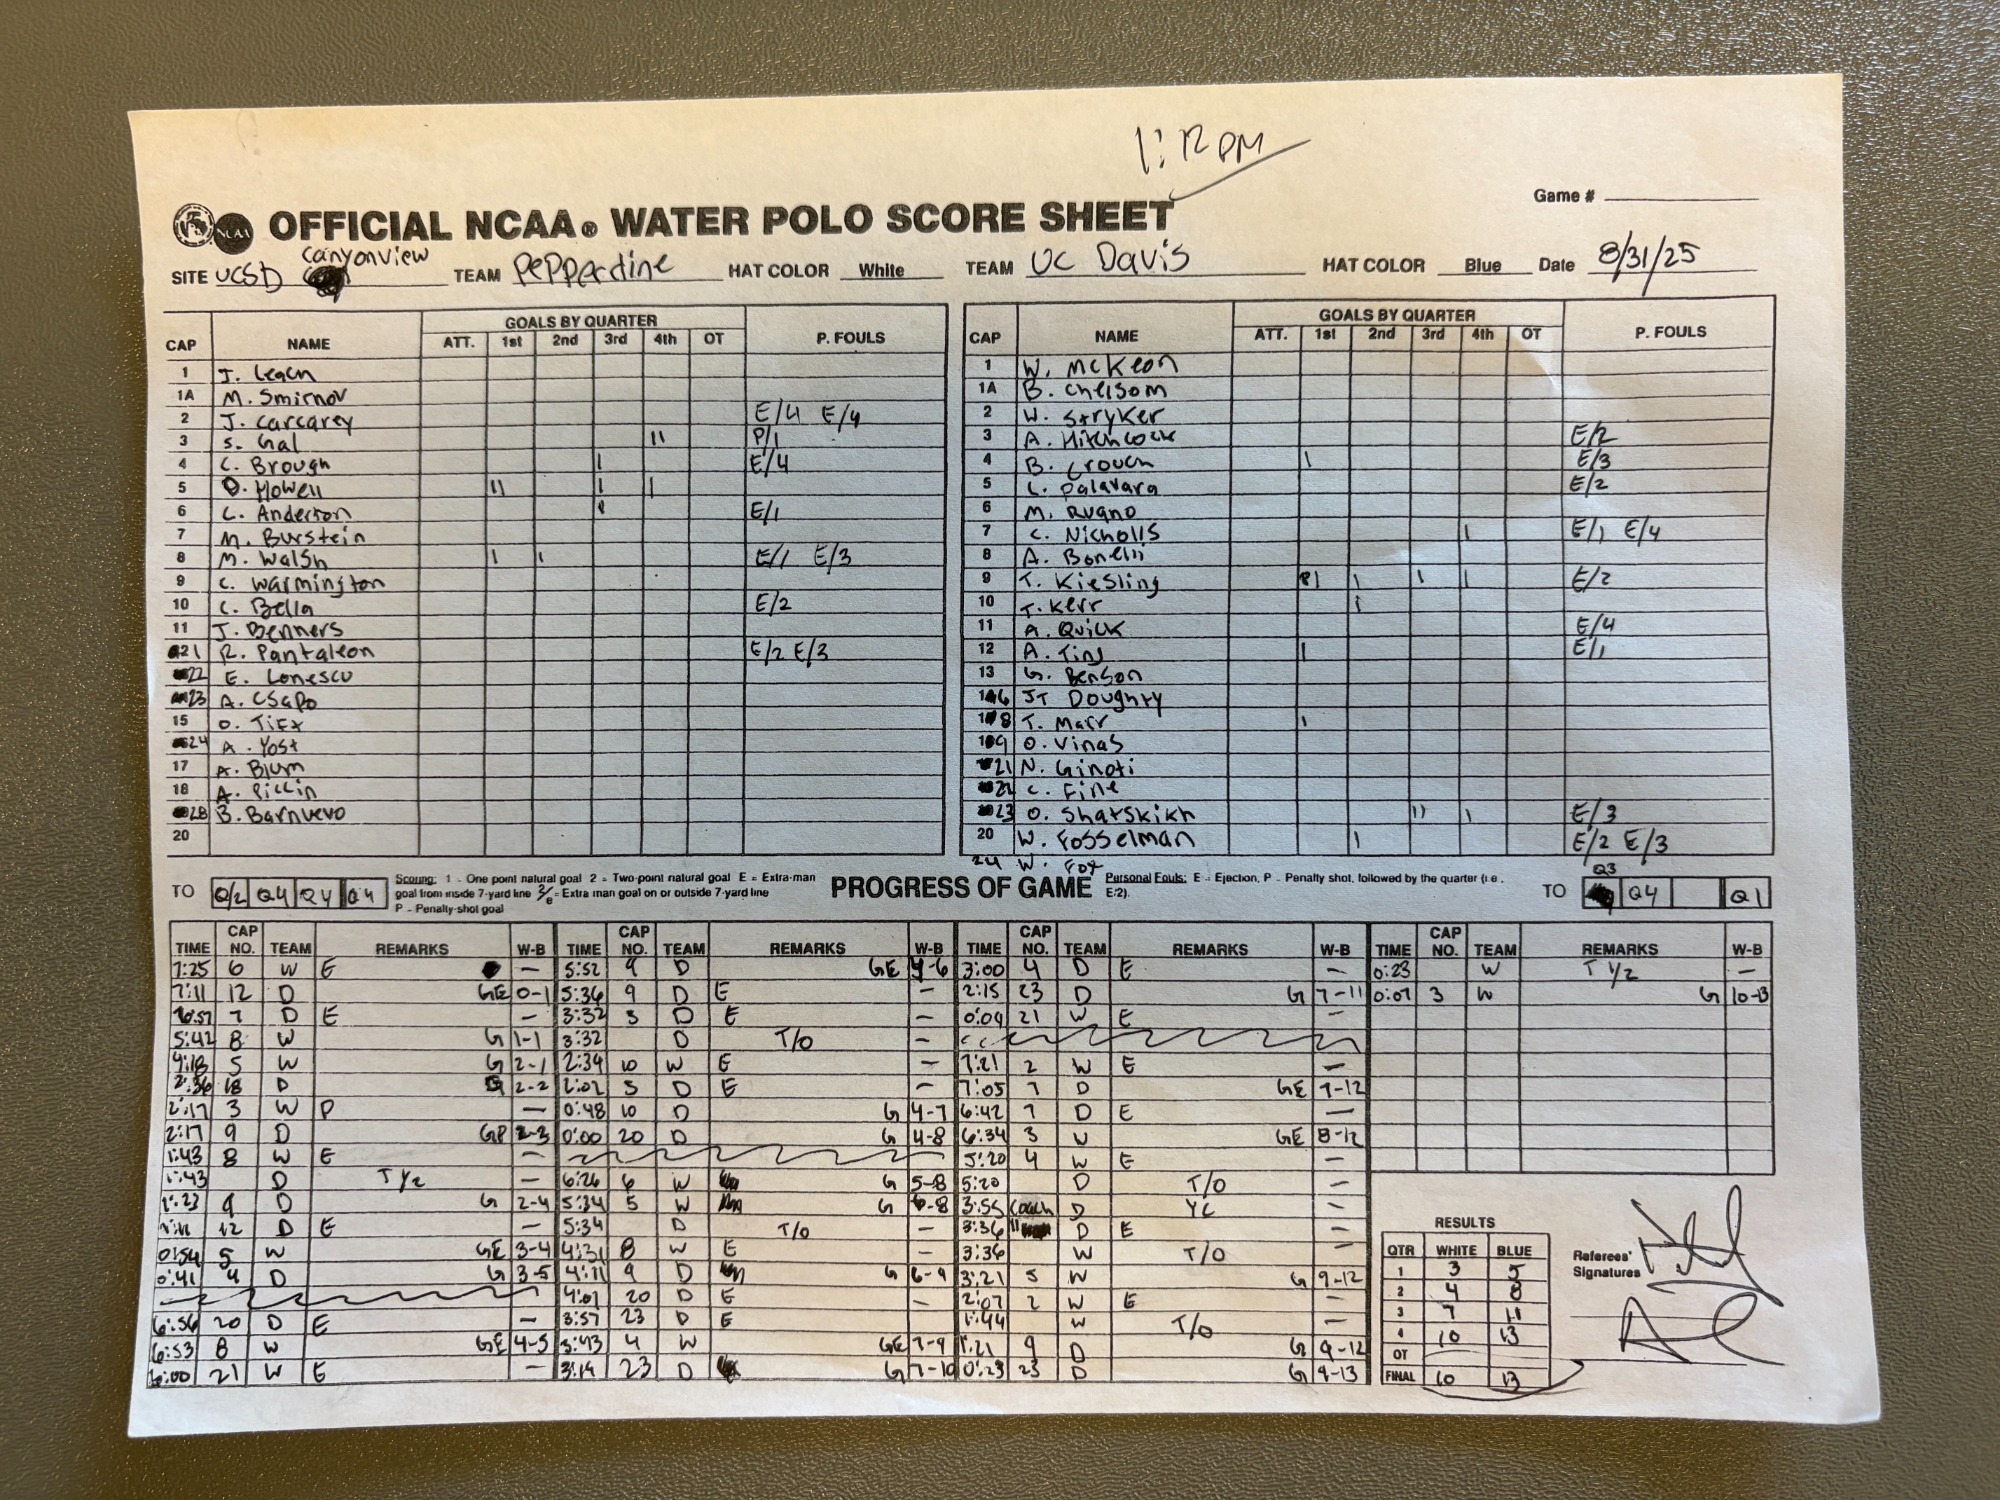 1:12 PM
Game #
OFFICIAL NCAA® WATER POLO SCORE SHEET
SITE UCSD Canyonview TEAM Pepperdine HAT COLOR White TEAM UC Davis HAT COLOR Blue Date 8/31/25
CAP NAME GOALS BY QUARTER P. FOULS
ATT. 1st 2nd 3rd 4th OT
1 J. Leach
1A M. Smirnov
2 J. Carcarey E/4 E/4
3 S. Gal 11 P/1
4 C. Brough 1 E/4
5 D. Howell 11 1 1
6 C. Anderson 1 E/1
7 M. Burstein
8 M. Walsh 1 1 E/1 E/3
9 C. Warmington
10 C. Bella E/2
11 J. Benners
21 R. Pantaleon E/2 E/3
22 E. Lonescu
23 A. Csapo
15 O. Tift
24 A. Yost
17 A. Blum
18 A.
28 B. Barnuevo
20
CAP NAME GOALS BY QUARTER P. FOULS
ATT. 1st 2nd 3rd 4th OT
1 W. McKeon
1A B. Chelsom
2 W. Stryker
3 A. Hitchcock E/2
4 B. Crouch 1 E/3
5 L. Palavara E/2
6 M. Rugno
7 C. Nicholls 1 E/1 E/4
8 A. Bonelli
9 T. Kiesling P1 1 1 1 E/2
10 T. Kerr 1
11 A. Quick E/4
12 A. Ting 1 E/1
13 G. Benson
16 JT Doughty
18 T. Marr 1
19 O. Vinas
21 N. Ginoti
22 C. Fine
23 O. Shatskikh 11 1 E/3
20 W. Fosselman 1 E/2 E/3
24 W. Fox
TO Q/2 Q4 Q4 Q4
Scoring: 1 - One point natural goal 2 - Two-point natural goal E = Extra-man
goal from inside 7-yard line 2/e = Extra man goal on or outside 7-yard line
P - Penalty-shot goal
PROGRESS OF GAME
Personal Fouls: E - Ejection, P - Penalty shot, followed by the quarter (i.e.,
E/2).
TO Q3 Q4 Q1
TIME CAP NO. TEAM REMARKS W-B
7:25 6 W E —
7:11 12 D GE 0-1
6:57 7 D E —
5:42 8 W G 1-1
4:18 5 W G 2-1
2:36 18 D G 2-2
2:17 3 W P —
2:17 9 D GP 2-3
1:43 8 W E —
1:43 D T 1/2 —
1:23 9 D G 2-4
1:11 12 D E —
0:54 5 W GE 3-4
0:41 4 D G 3-5
6:56 20 D E
6:53 8 W GE 4-5
6:00 21 W E —
TIME CAP NO. TEAM REMARKS W-B
5:52 9 D GE 4-6
5:36 9 D E —
3:32 3 D E —
3:32 D T/O —
2:34 10 W E —
2:02 5 D E —
0:48 10 D G 4-7
0:00 20 D G 4-8
6:26 6 W G 5-8
5:34 5 W G 6-8
5:34 D T/O —
4:31 8 W E —
4:11 9 D G 6-9
4:01 20 D E —
3:57 23 D E
3:43 4 W GE 7-9
3:14 23 D G 7-10
TIME CAP NO. TEAM REMARKS W-B
3:00 4 D E —
2:15 23 D G 7-11
0:09 21 W E —
7:21 2 W E —
7:05 7 D GE 7-12
6:42 7 D E —
6:34 3 W GE 8-12
5:20 4 W E —
5:20 D T/O —
3:55 Coach D YC —
3:36 11 D E —
3:36 W T/O —
3:21 5 W G 9-12
2:07 2 W E —
1:44 W T/O —
1:21 9 D G 9-12
0:23 23 D G 9-13
TIME CAP NO. TEAM REMARKS W-B
0:23 W T 1/2 —
0:07 3 W G 10-13
RESULTS
QTR WHITE BLUE
1 3 5
2 4 8
3 7 11
4 10 13
OT
FINAL 10 13
Referees'
Signatures